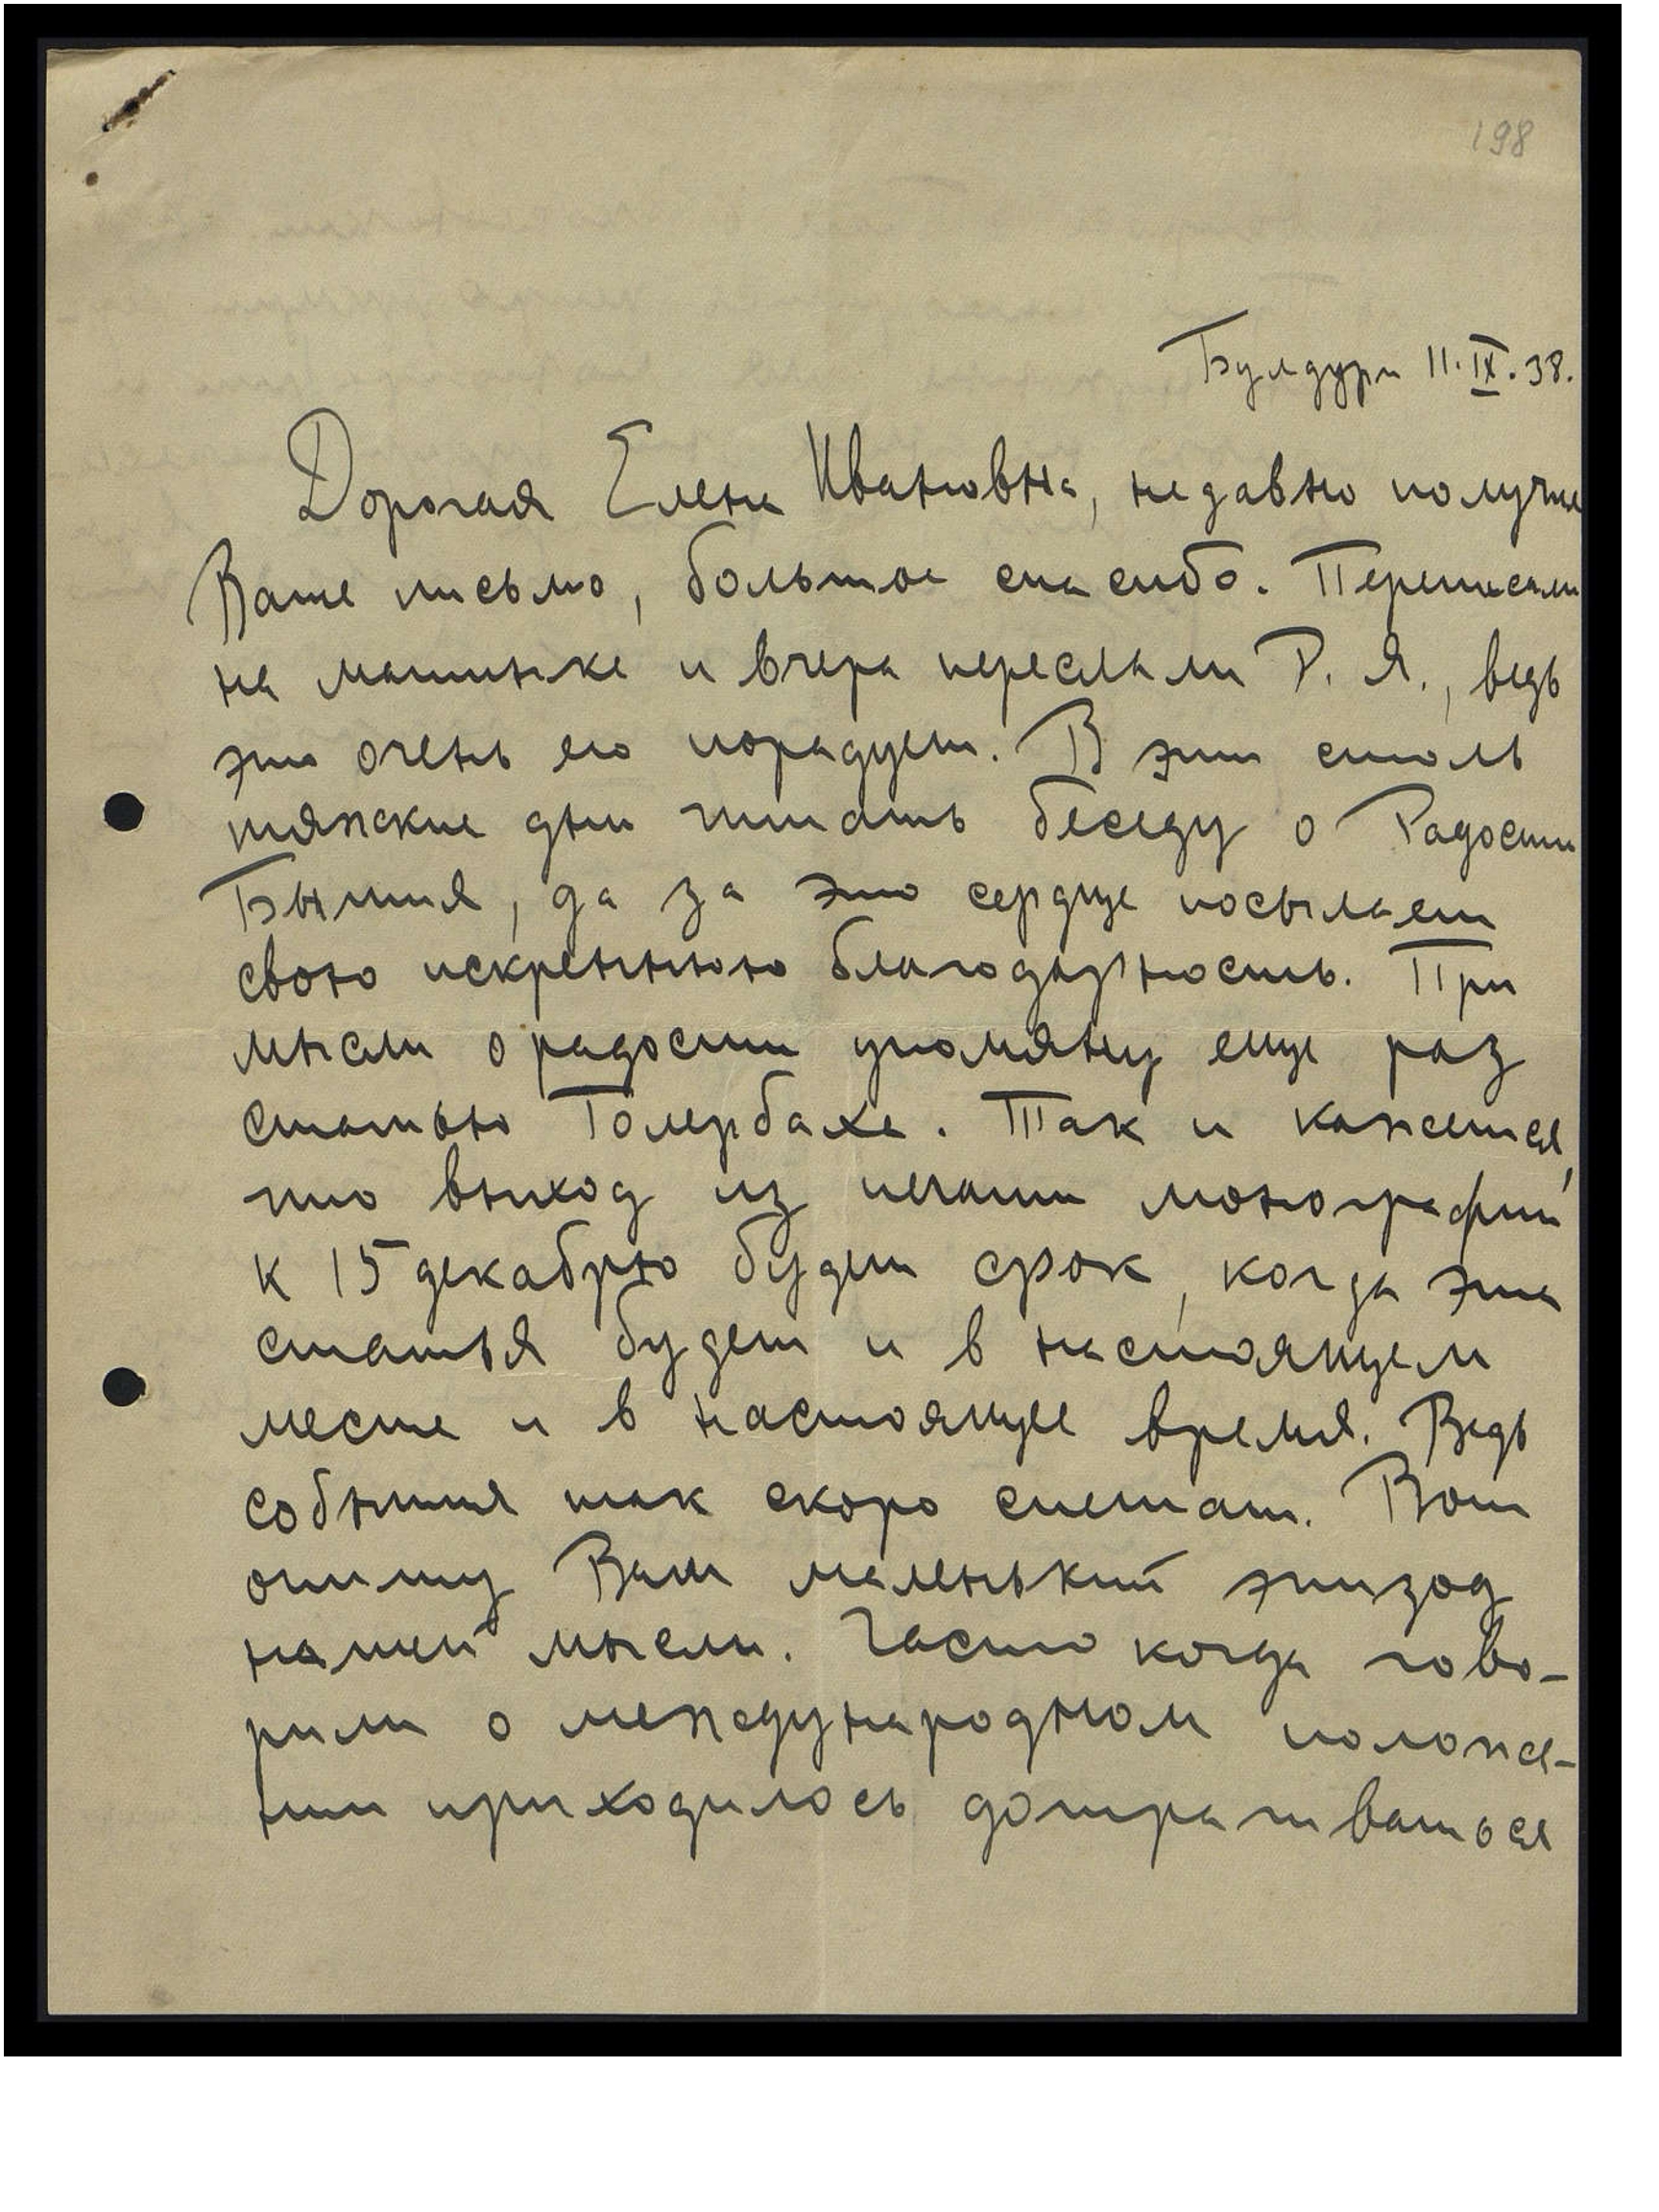 198
Булдури 11.IX.38.
Дорогая Елена Ивановна, недавно получил
Ваше письмо, большое спасибо. Переписали
на машинке и вчера переслали Р. Я., ведь
это очень его порадует. В эти столь
тяжкие дни читать беседу о Радости
Бытия, да за это сердце посылает
свою искреннюю благодарность. При
мысли о радости упомяну еще раз
статью Голербаха. Так и кажется,
что выход из печати монографий
к 15 декабрю будет срок, когда эта
статья будет и в настоящем
месте и в настоящее время. Ведь
события так скоро спешат. Вот
опишу Вам маленький эпизод
нашей мысли. Часто когда гово-
рили о международном положе-
нии приходилось дотрагиваться